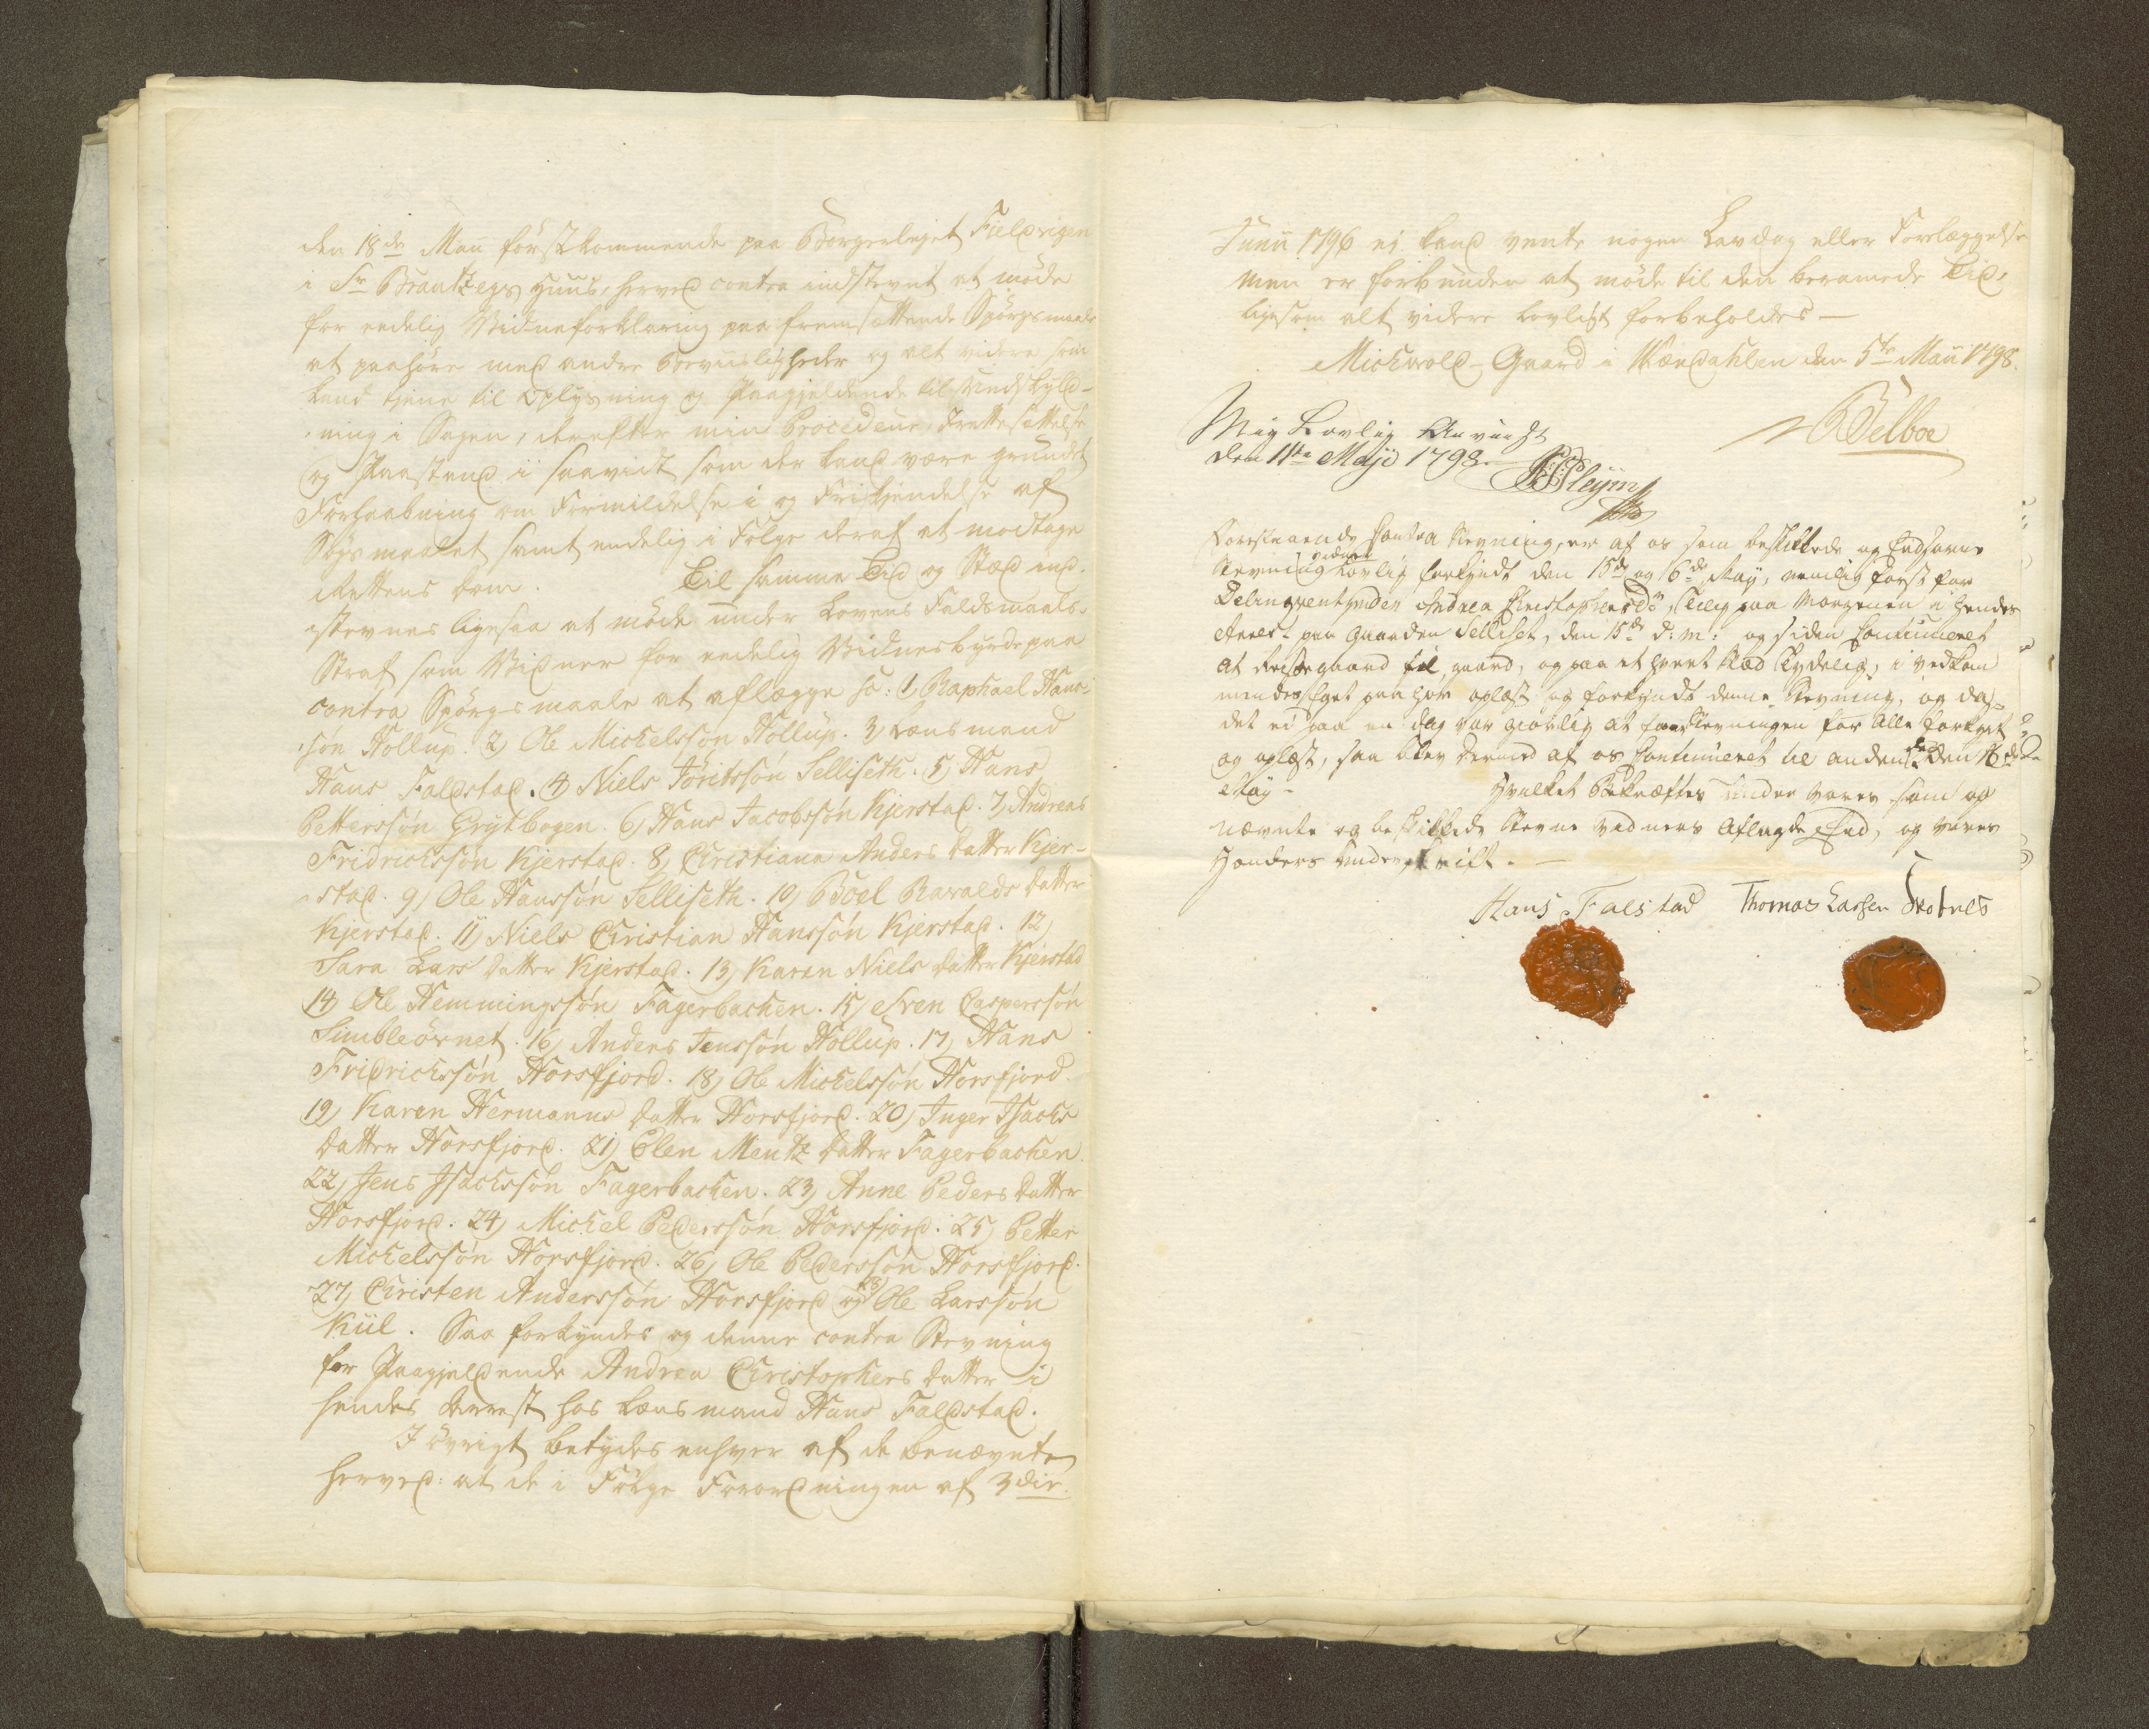 den 18de Maii først kommende paa Borgerlejet Fieldvigen
i Sr Brantzegs Huus, herved contra indstevnt at møde
for eedelig Vidneforklaring paa fremsættende Spørgsmaale
at paahøre med andre Beviisligheder og alt videre som
kand tjene til Oplysning og Paagjeldende til Undskyld-
ning i Sagen, derefter min Procedeur, Irettesættelse
og Paastand i saavidt som der kand være grundet
Forhaabning om Formildelse i og Frikjendelse af
Søgsmaalet samt endelig i Følge deraf at modtage
Rettens Dom. Til samme Tid og Stæd ind-
stevnes ligesaa at møde under Lovens Faldsmaals
Straf som Vidner for eedelig Vidnesbyrd paa
contra Spørgsmaale at aflægge so: 1, Raphael Hans-
søn Hollup. 2, Ole Michelssøn Hollup. 3, Lænsmand
Hans Faldstad. 4, Niels Jøritssøn Selliseth. 5, Hans
Petterssøn Grytbogen. 6, Hans Jacobssøn Kjerstad. 7, Andreas
Fridrichssøn Kjerstad. 8, Christiana Anders Datter Kjer-
stad. 9, Ole Hanssøn Selliseth. 10, Boel Haralds Datter
Kjerstad. 11, Niels Christian Hanssøn Kjerstad. 12,
Sara Lars Datter Kjerstad. 13, Karen Niels Datter Kjerstad
14, Ole Hemmingssøn Fagerbachen. 15, Sven Casperssøn
Simbleøvnet. 16, Anders Jenssøn Hollup. 17, Hans
Fridrichssøn Horsfjord. 18, Ole Michelssøn Horsfjord.
19, Karen Hermanns Datter Horsfjord. 20, Inger Isachs
Datter Horsfjord. 21, Elen Mentz Datter Fagerbachen.
22, Jens Isachssøn Fagerbachen. 23, Anne Peders Datter
Horsfjord. 24, Michel Pederssøn Horsfjord. 25, Petter
Michelssøn Horsfjord. 26, Ole Pederssøn Horsfjord.
27, Christen Anderssøn Horsfjord og 28, Ole Larssøn
Kiil. Saa forkyndes og denne contra Stevning
for Paagjeldende Andrea Christophers Datter i
hendes Arrest hos Lænsmand Hans Faldstad.
I øvrigt betydes enhver af de benævnte
herved: at de i Følge Forordningen af 3die
Junii 1796 ej kand vente nogen Lavdag eller Forelæggelse
men er forbunden at møde til den beramede Tid,
ligesom alt videre lovligt forbeholdes —
Michvold-Gaard i Værdahlen den 5te Maii 1798.
Belboe
Mig Lovlig Anviist
den 11te Maji 1798.
Forestaaende Contra Stevning, er af os som beskikkede og Eedsorne
Stevningsvidner Lovlig forkyndt den 15de og 16de May, nemlig først for
Delinqventinden Andrea Christophersdr, tilig paa Morgenen i hendes
Arest paa Gaarden Selliset, den 15de d: m: og siden Continueret
at Reise gaard fil gaard, og paa et hvert stæd tydelig, i vedkom
mendes Eget paahør oplæst og forkyndt denne Stevning, og da
det ei paa en dag var giørlig at faae Stevningen for Alle forkyndt
og oplæst, saa blev dermed af os Continueret til anden dagen den 16de
May- Hvilket Bekræftes under vores som op
nævnte og beskikkede Stevne vidners Aflagde Eed, og vores
Hænders Underskrift. —
Hans Falstad Thomas Larsen